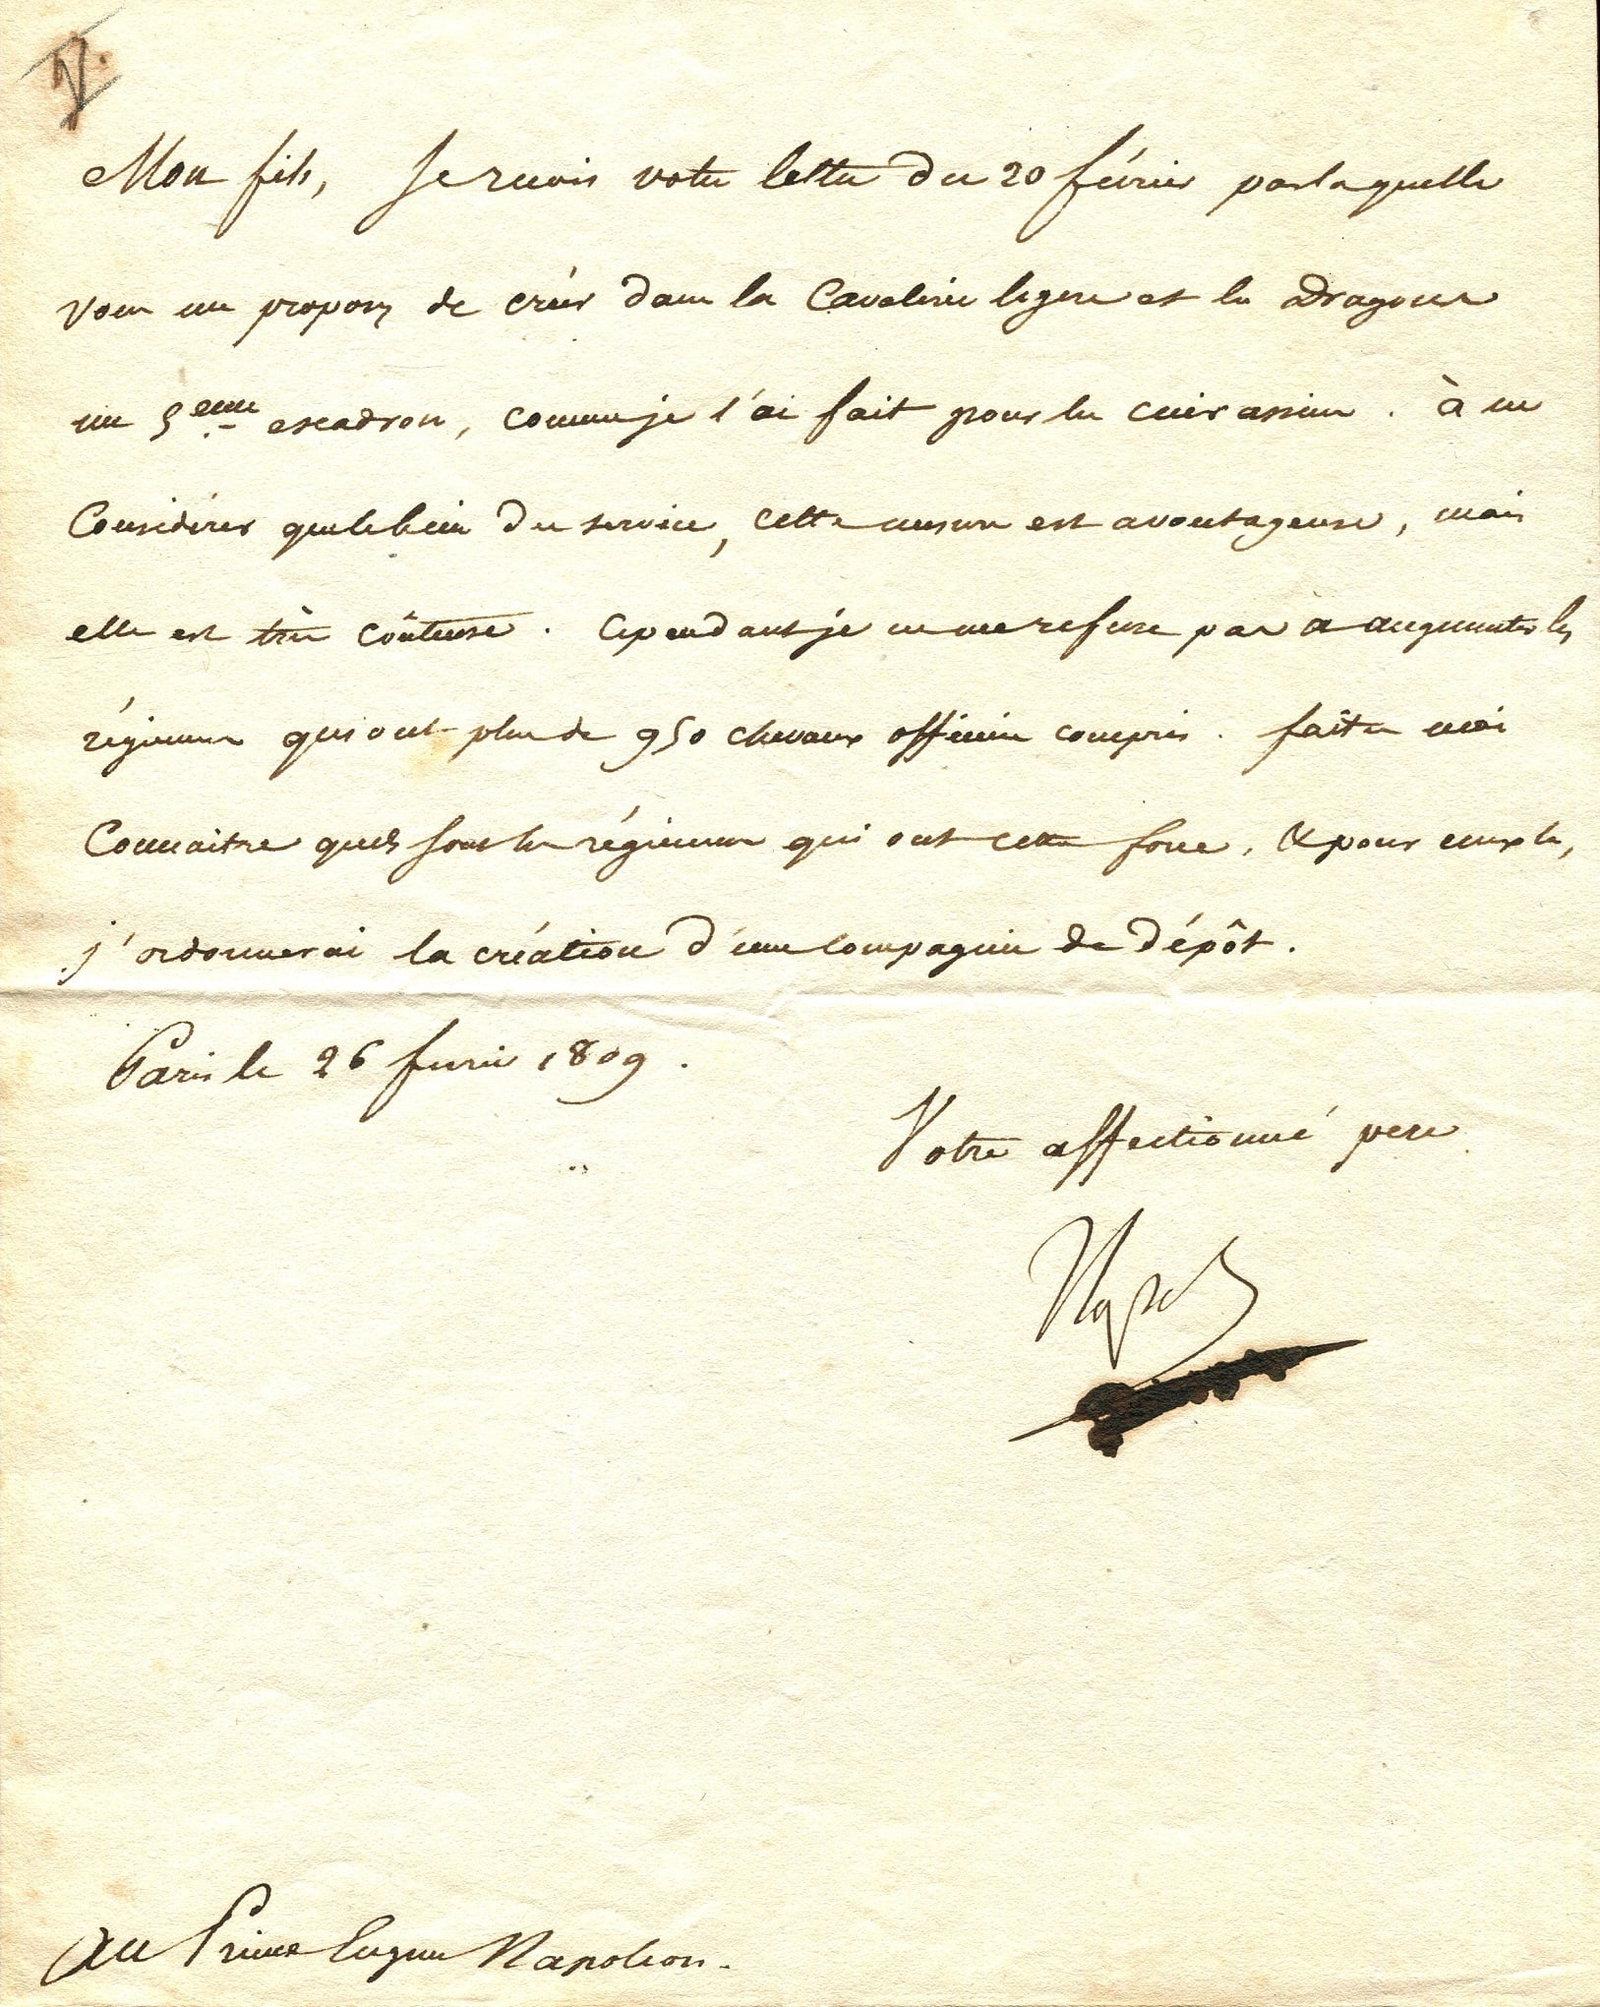 Mon fils, Je reçois votre lettre du 20 février par laquelle
vous me proposez de créer dans la Cavalerie legere et les Dragons
un 5eme escadron, comme je l'ai fait pour les cuirassiers. à ne
Considérer que le bien du service, cette mesure est avantageuse, mais
elle est très coûteuse. Cependant je ne me refuse pas a augmenter les
régimens qui ont plus de 950 chevaux officiers compris. faites moi
Connaitre quels sont les régimens qui ont cette force, & pour eux
j'ordonnerai la création d'une compagnie de dépôt.
Paris le 26 fevrier 1809.
Votre affectionné pere
Napol
Au Prince Eugene Napoleon.